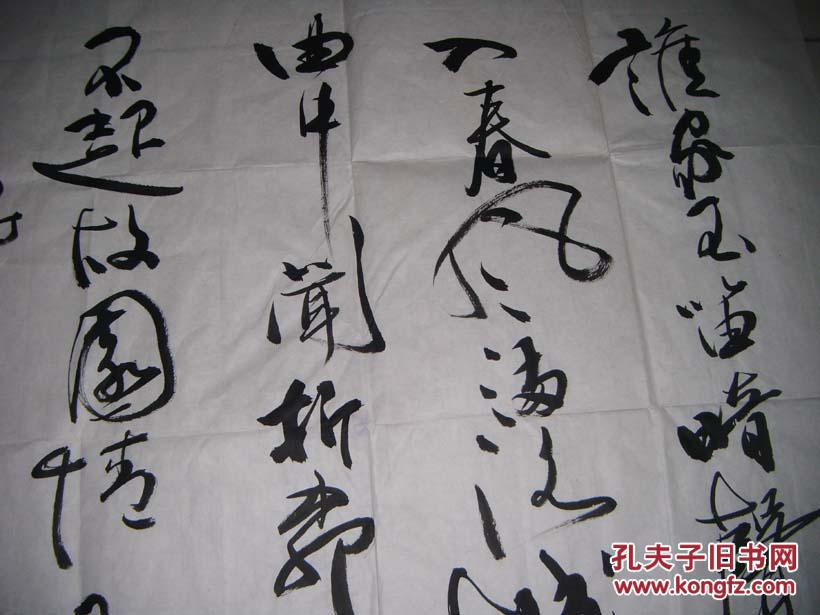 誰家玉笛暗飛
入春風滿洛城
曲中聞折柳
不起故園情
孔夫子旧书网
www.kongfz.com